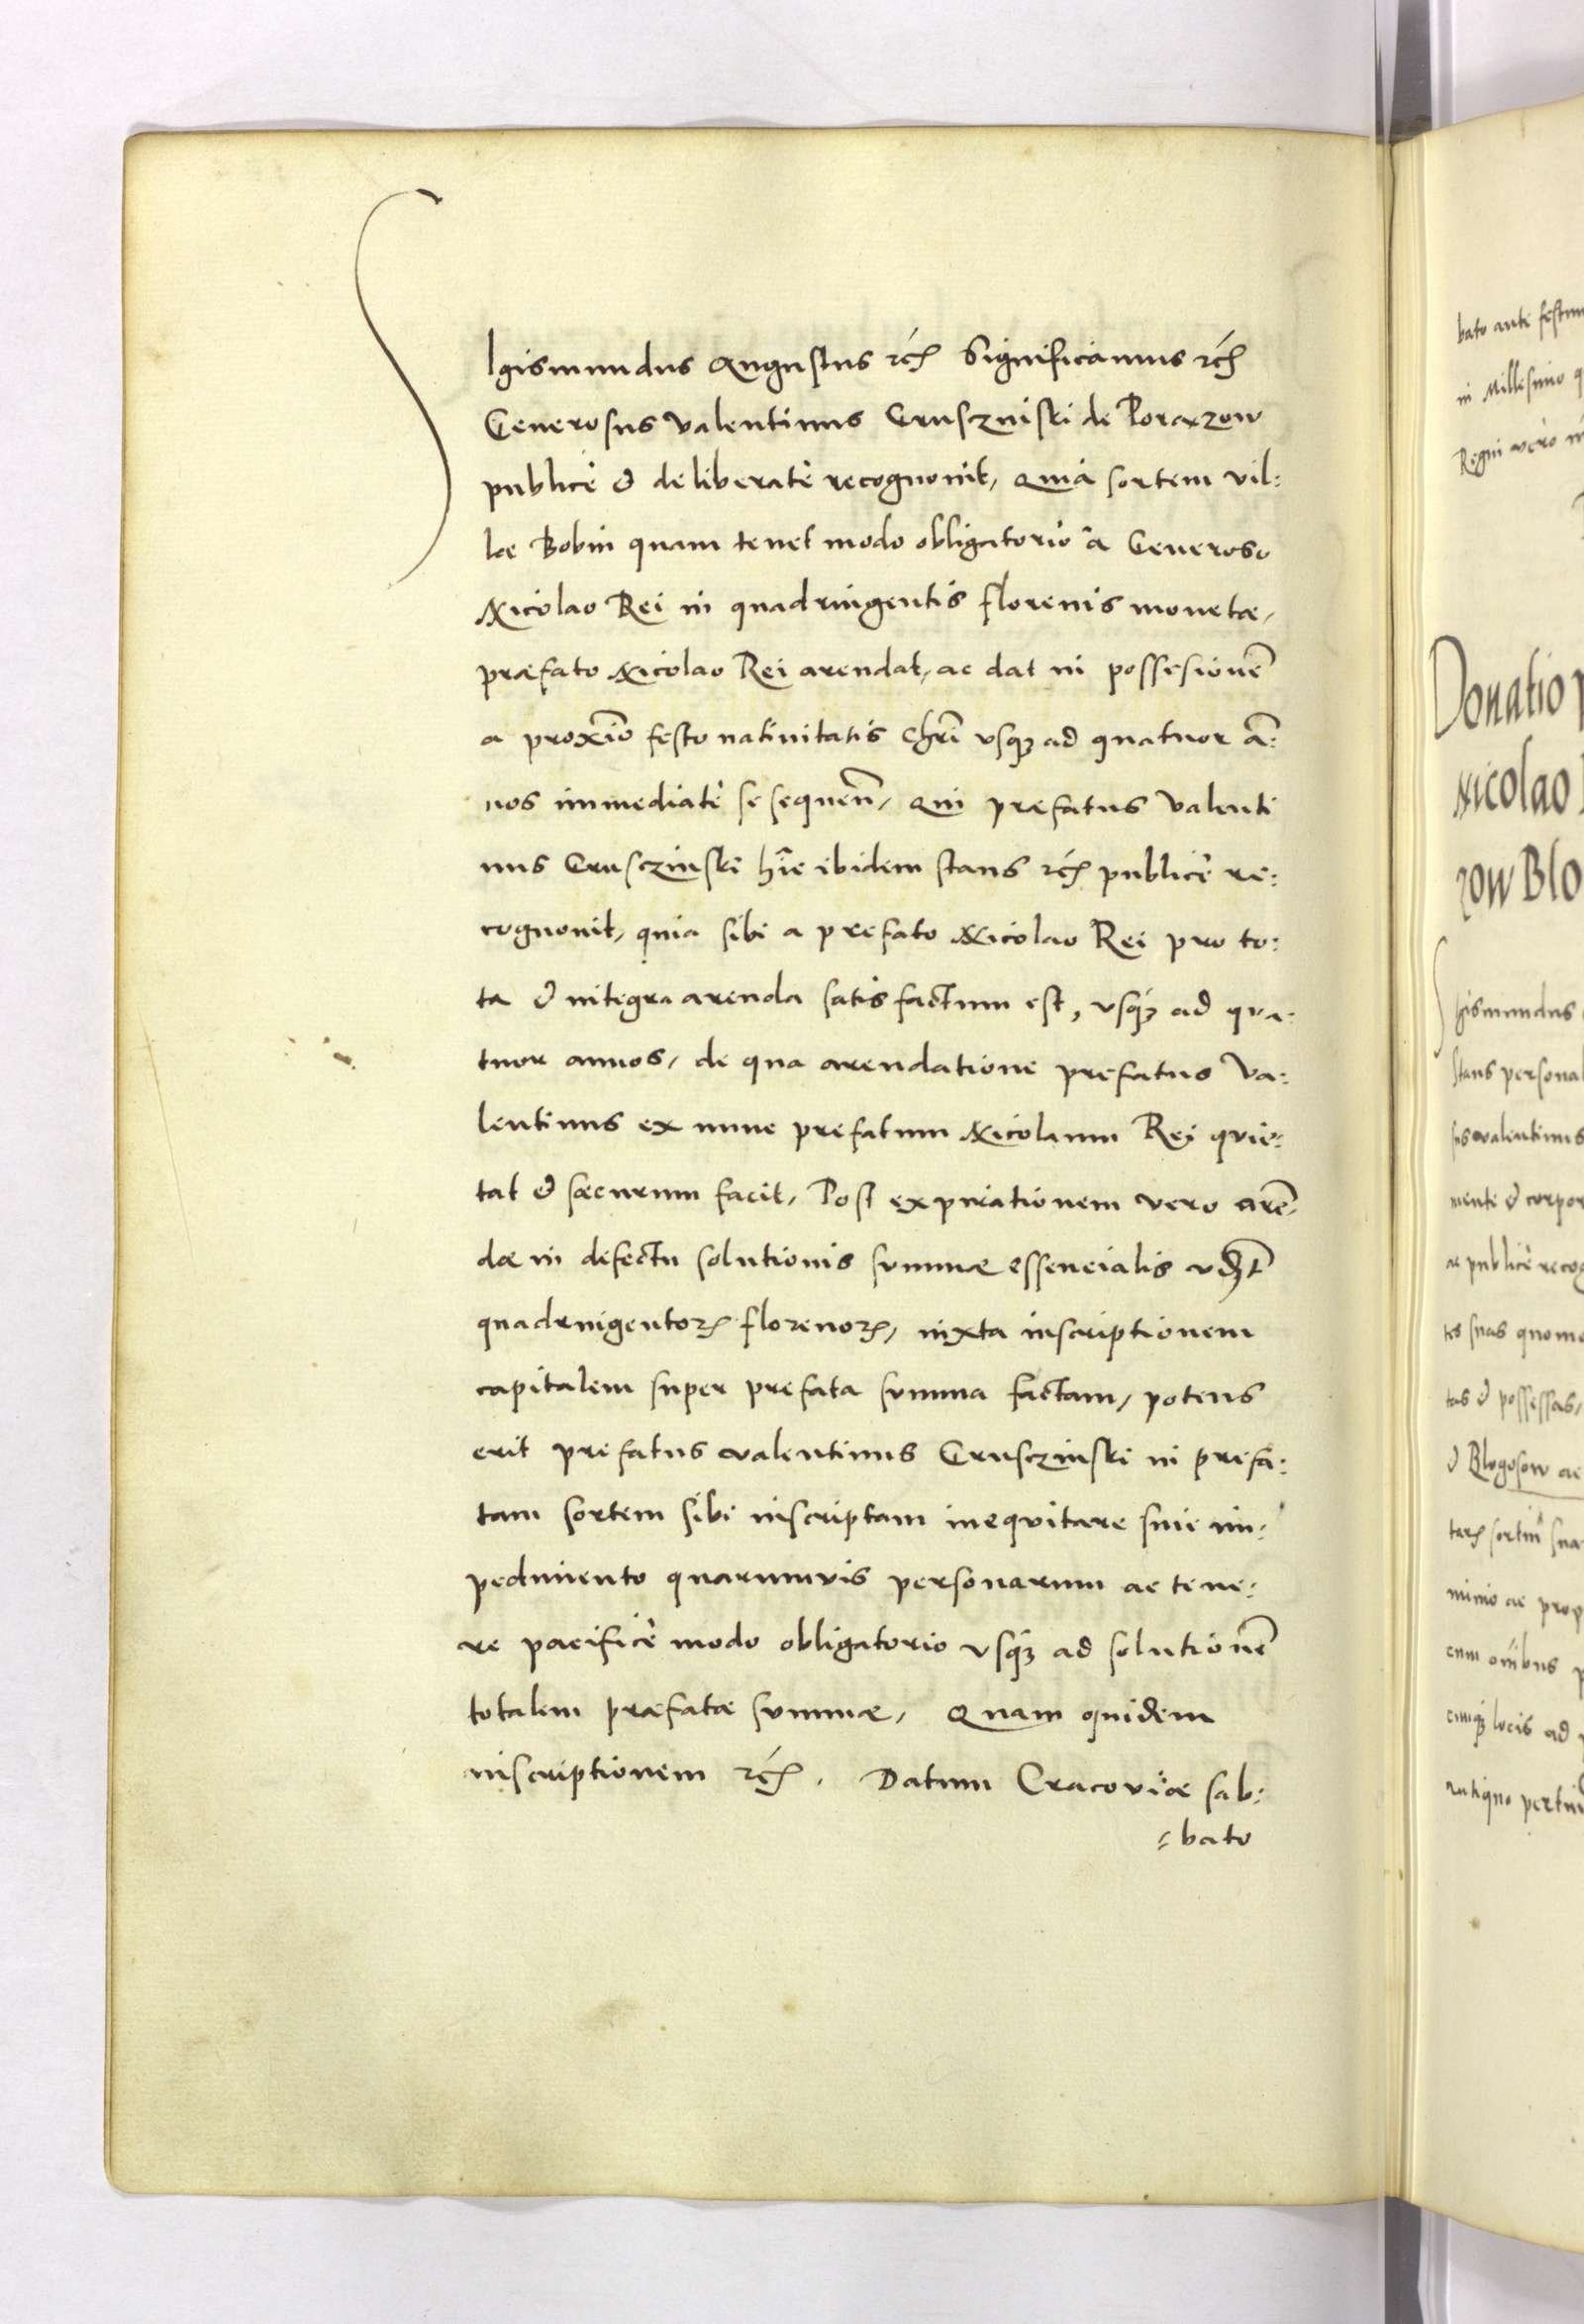 SIgismundus Augustus rč Significamus rč
Generosus Valentinus Crusczinski de Poraxzow
publicè & deliberatè recognovit, Quia sortem vil:
lae Bobin quam tenet modo obligatorio à Generoso
Nicolao Rei in quadringentis florenis monetae,
praefato Nicolao Rei arendat, ac dat in possesionē
a proxīo festo nativitatis Chrī usq; ad quatuor ā:
nos immediatè se sequen̄, Qui praefatus Valenti
nus Crusczinski hīc ibidem stans rč publicè re:
cognovit, quia sibi a prefato Nicolao Rei pro to:
ta & integra arenda satisfactum est, usq; ad qua:
tuor annos, de qua arendatione prefatus Va:
lentinus ex nunc prefatum Nicolaum Rei quie:
tat & saecurum facit, Post expirationem vero arē:
dae in defectu solutionis summae essencialis vdzt
quadringentoꝝ florenoꝝ, iuxta inscriptionem
capitalem super prefata summa factam, potens
erit prefatus Valentinus Crusczinski in prefa:
tam sortem sibi inscriptam inequitare sine im:
pedimento quarumvis personarum ac tene:
re pacificè modo obligatorio usq; ad solutionē
totalem praefatae summae, Quam quidem
inscriptionem rč. Datum Cracoviae sab:
:bato
bato ante festum
in Millesimo q
Regni vero
Donatio
Nicolao
zow Blo
Sgismundus
stans personal
sus valentinus
mente & corpor
ac publicè recog
tes suas quomo
tas & possessas,
& Blogosow ac
taꝝ sortiū sua
minio ac prop
cum oībus p
cunq; locis ad
antiquo pertin